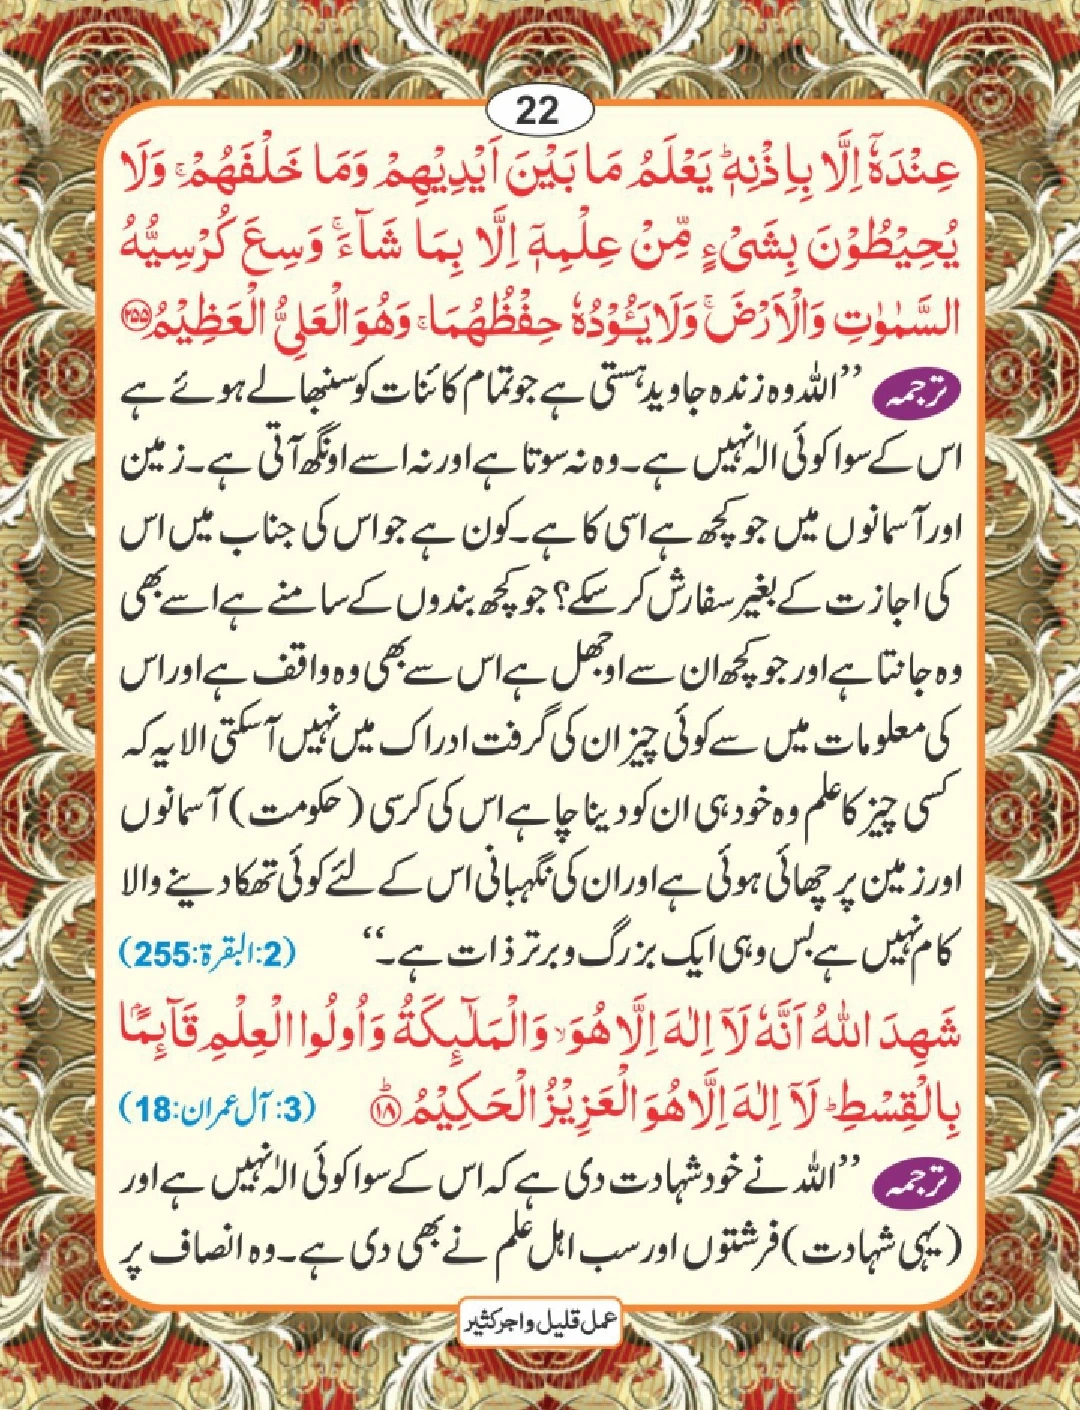 22
عِنْدَهٗۤ اِلَّا بِاِذْنِهٖ ؕ یَعْلَمُ مَا بَیْنَ اَیْدِیْهِمْ وَمَا خَلْفَهُمْ ۚ وَلَا
یُحِیْطُوْنَ بِشَیْءٍ مِّنْ عِلْمِهٖۤ اِلَّا بِمَا شَآءَ ۚ وَسِعَ كُرْسِیُّهُ
السَّمٰوٰتِ وَالْاَرْضَ ۚ وَلَا یَـُٔوْدُهٗ حِفْظُهُمَا ۚ وَهُوَ الْعَلِیُّ الْعَظِیْمُ ﴿۲۵۵﴾
ترجمہ ’’اللہ وہ زندہ جاوید ہستی ہے جو تمام کائنات کو سنبھالے ہوئے ہے
اس کے سوا کوئی الٰہ نہیں ہے۔ وہ نہ سوتا ہے اور نہ اسے اونگھ آتی ہے۔ زمین
اور آسمانوں میں جو کچھ ہے اسی کا ہے۔ کون ہے جو اس کی جناب میں اس
کی اجازت کے بغیر سفارش کر سکے؟ جو کچھ بندوں کے سامنے ہے اسے بھی
وہ جانتا ہے اور جو کچھ ان سے اوجھل ہے اس سے بھی وہ واقف ہے اور اس
کی معلومات میں سے کوئی چیز ان کی گرفت ادراک میں نہیں آ سکتی الا یہ کہ
کسی چیز کا علم وہ خود ہی ان کو دینا چاہے اس کی کرسی (حکومت) آسمانوں
اور زمین پر چھائی ہوئی ہے اور ان کی نگہبانی اس کے لئے کوئی تھکا دینے والا
کام نہیں ہے بس وہی ایک بزرگ و برتر ذات ہے۔‘‘ (2:البقرۃ:255)
شَهِدَ اللّٰهُ اَنَّهٗ لَاۤ اِلٰهَ اِلَّا هُوَ ۙ وَالْمَلٰٓىِٕكَةُ وَاُولُوا الْعِلْمِ قَآىِٕمًۢا
بِالْقِسْطِ ؕ لَاۤ اِلٰهَ اِلَّا هُوَ الْعَزِیْزُ الْحَكِیْمُ ﴿۱۸﴾ؕ (3:آل عمران:18)
ترجمہ ’’اللہ نے خود شہادت دی ہے کہ اس کے سوا کوئی الٰہ نہیں ہے اور
(یہی شہادت) فرشتوں اور سب اہل علم نے بھی دی ہے۔ وہ انصاف پر
عمل قلیل و اجر کثیر